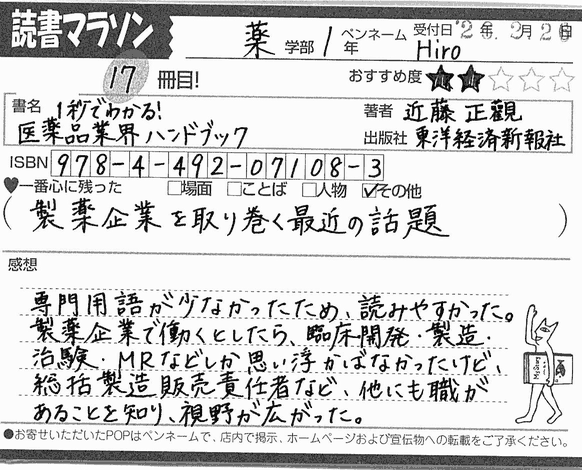 読書マラソン
薬 学部 1年 ペンネーム Hiro 受付日 '26年 2月 26日
17 冊目! おすすめ度 ★★☆☆☆
書名 1秒でわかる! 著者 近藤 正觀
医薬品業界ハンドブック 出版社 東洋経済新報社
ISBN 978-4-492-07108-3
♥一番心に残った □場面 □ことば □人物 ☑その他
(製薬企業を取り巻く最近の話題)
感想
専門用語が少なかったため、読みやすかった。
製薬企業で働くとしたら、臨床開発・製造・
治験・MRなどしか思い浮かばなかったけど、
総括製造販売責任者など、他にも職が
あることを知り、視野が広がった。
●お寄せいただいたPOPはペンネームで、店内で掲示、ホームページおよび宣伝物への転載をご了承ください。